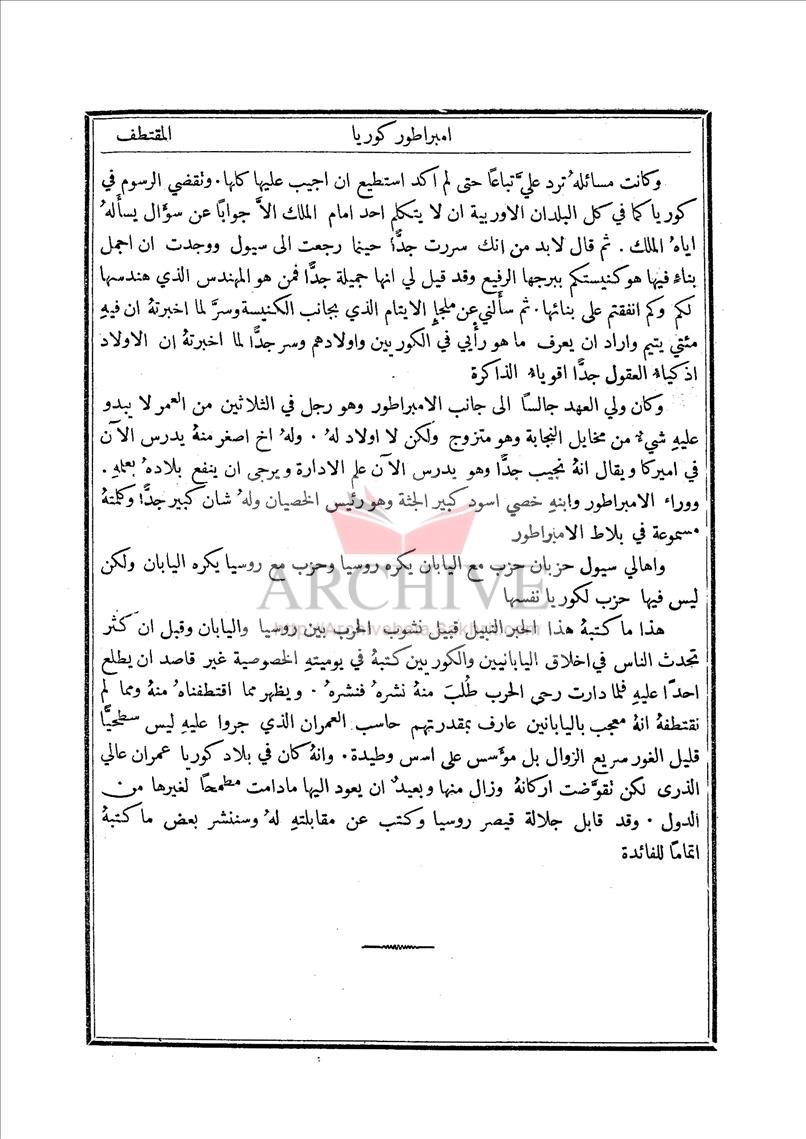 امبراطور كوريا المقتطف
وكانت مسائله ترد عليَّ تباعًا حتى لم اكد استطيع ان اجيب عليها كلها. وتقضي الرسوم في
كوريا كما في كل البلدان الاوربية ان لا يتكلم احد امام الملك الاَّ جوابًا عن سؤال يسأله
اياه الملك. ثم قال لابد من انك سررت جدًّا حينما رجعت الى سيول ووجدت ان اجمل
بناءٍ فيها هو كنيستكم ببرجها الرفيع وقد قيل لي انها جميلة جدًّا فمن هو المهندس الذي هندسها
لكم وكم انفقتم على بنائها. ثم سألني عن ملجإ الايتام الذي بجانب الكنيسة وسرَّ لما اخبرتهُ ان فيهِ
مئتي يتيم واراد ان يعرف ما هو رأيي في الكوريين واولادهم وسر جدًّا لما اخبرتهُ ان الاولاد
اذكياء العقول جدًّا اقوياء الذاكرة
وكان ولي العهد جالسًا الى جانب الامبراطور وهو رجل في الثلاثين من العمر لا يبدو
عليهِ شيءٌ من مخايل النجابة وهو متزوج ولكن لا اولاد لهُ. ولهُ اخ اصغر منهُ يدرس الآن
في اميركا ويقال انهُ نجيب جدًّا وهو يدرس الآن علم الادارة ويرجى ان ينفع بلادهُ بعلمهِ.
ووراء الامبراطور وابنهِ خصي اسود كبير الجثة وهو رئيس الخصيان ولهُ شان كبير جدًّا وكلمتهُ
مسموعة في بلاط الامبراطور
واهالي سيول حزبان حزب مع اليابان يكره روسيا وحزب مع روسيا يكره اليابان ولكن
ليس فيها حزب لكوريا نفسها
ARCHIVE
http://Archivebeta.Sakhrit.com
هذا ما كتبهُ هذا الحبر النبيل قبيل نشوب الحرب بين روسيا واليابان وقبل ان كثر
تحدث الناس في اخلاق اليابانيين والكوريين كتبهُ في يوميتهِ الخصوصية غير قاصد ان يطلع
احدًا عليهِ فلما دارت رحى الحرب طُلبَ منهُ نشرهُ فنشرهُ. ويظهر مما اقتطفناه منهُ ومما لم
نقتطفهُ انهُ معجب باليابانين عارف بمقدرتهم حاسب العمران الذي جروا عليهِ ليس سطحيًّا
قليل الغور سريع الزوال بل مؤسس على اسس وطيدة. وانهُ كان في بلاد كوريا عمران عالي
الذرى لكن تقوَّضت اركانهُ وزال منها وبعيدٌ ان يعود اليها مادامت مطمحًا لغيرها من
الدول. وقد قابل جلالة قيصر روسيا وكتب عن مقابلتهِ لهُ وسننشر بعض ما كتبهُ
اتمامًا للفائدة